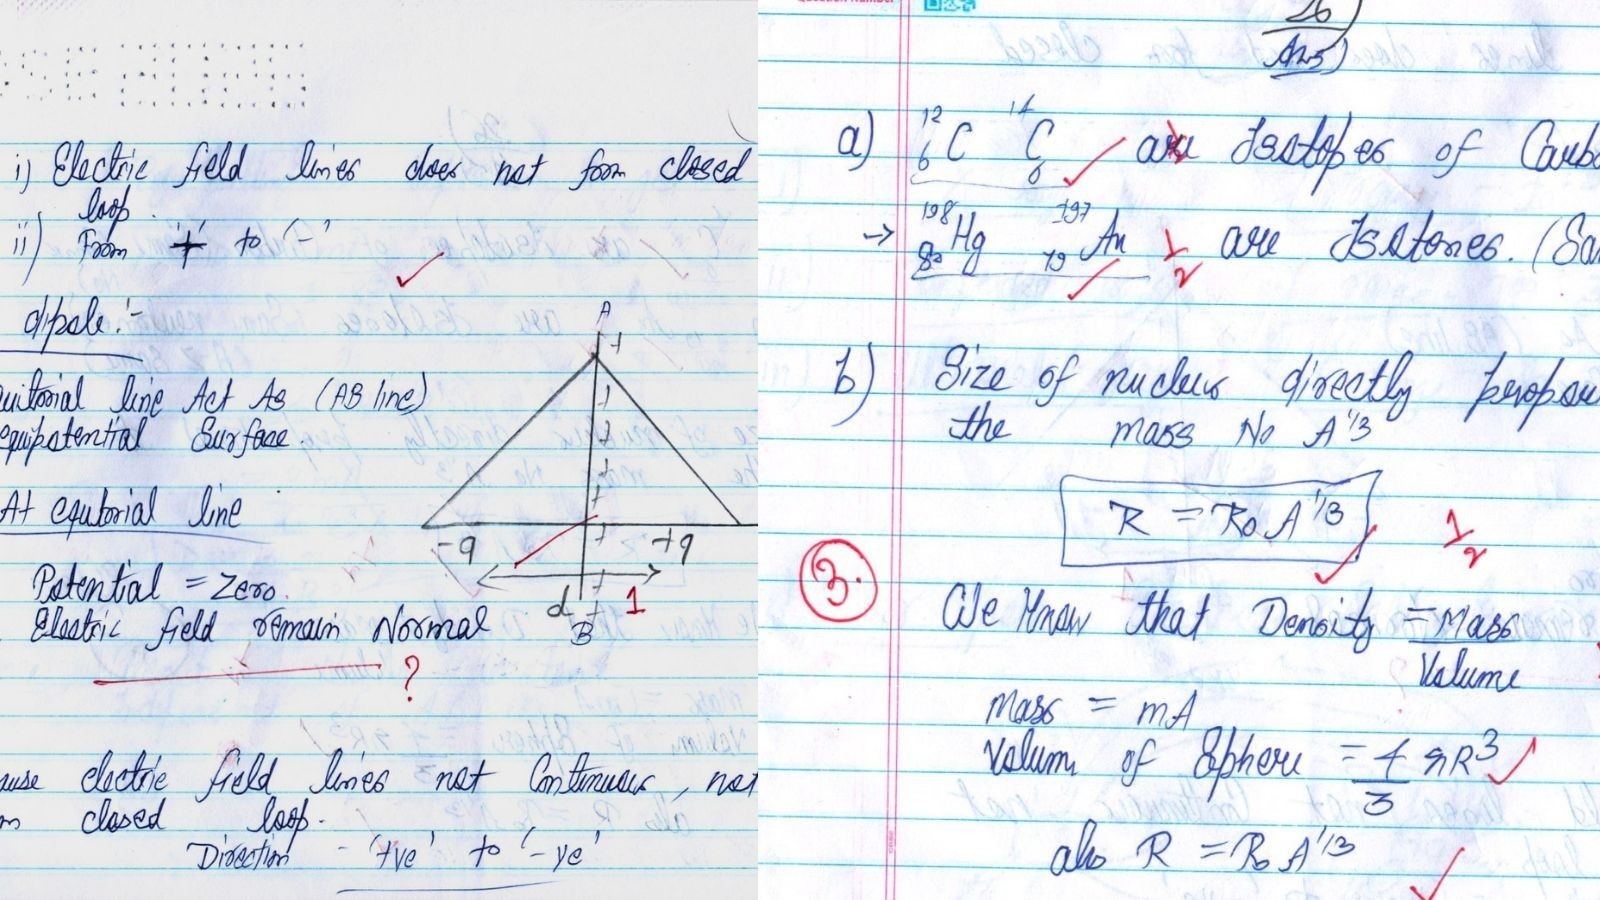 i) Electric field lines does not form closed
loop.
ii) From '+' to '-'
dipole :-
uitorial line Act As (AB line)
equipotential Surface.
At equtorial line
Potential = Zero.
Electric field remain Normal
?
A
+
+
+
+
+
-q
+q
d
1
B
ause electric field lines not Continuous, not
closed loop.
Direction - '+ve' to '-ve'
26
Ans)
a) ¹²₆C ¹⁴₆C are Isotopes of Carbo
→ ¹⁹⁸₈₀Hg ¹⁹⁷₇₉Au 1/2 are Isotones. (Sa
b) Size of nucleus directly propo
the mass No A^1/3
R = R₀ A^1/3
1/2
3.
We Know that Density = Mass
Volume
Mass = mA
Volum of Sphere = 4/3 πR³
also R = R₀ A^1/3